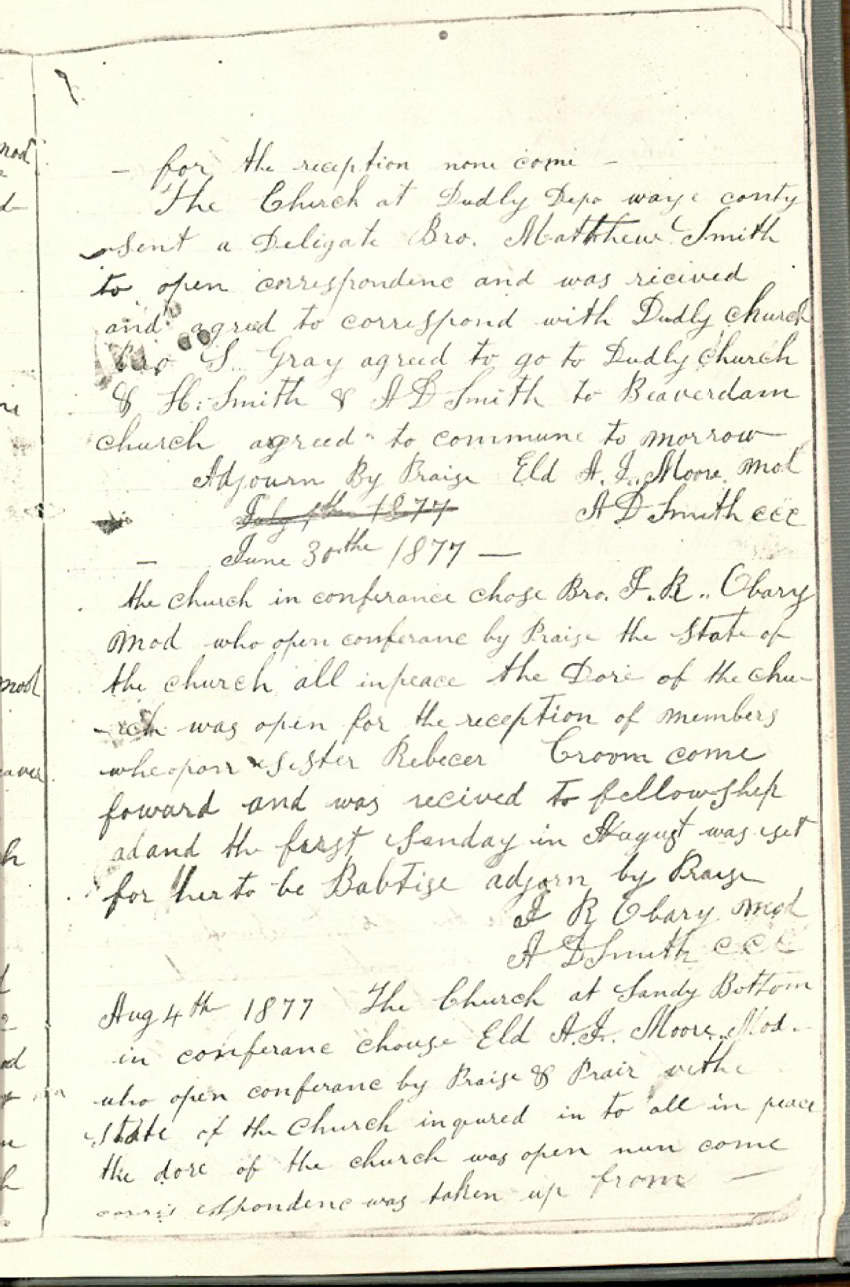 - for the reception none come -
The Church at Dudly Depo way e conty
sent a Deligate Bro. Matthew Smith
to open correspondenc and was recived
and agred to correspond with Dudly church
Bro S. Gray agreed to go to Dudly church
& H. Smith & A D Smith to Beaverdam
church agreed to commune to morrow
Adjourn By Praise Eld A. J. Moore Mod
July 1th 1877 A D Smith CCC
- June 30the 1877 -
the church in conferance chose Bro. J. R. Obary
Mod who open conferanc by Praise the state of
the church all in peace the Dore of the chu-
rch was open for the reception of members
whoopon sister Rebecer Croom come
foward and was recived to fellowship
ad and the first Sanday in August was set
for her to be Babtise adjorn by Praise
J R Obary Mod
A D Smith CCC
Aug 4th 1877 The Church at Sandy Bottom
in conferanc chouse Eld A. J. Moore Mod.
who open conferanc by Praise & Prair
state of the church inqured in to all in peace
the dore of the church was open nun come
espondenc was taken up from -
mod
mod
h